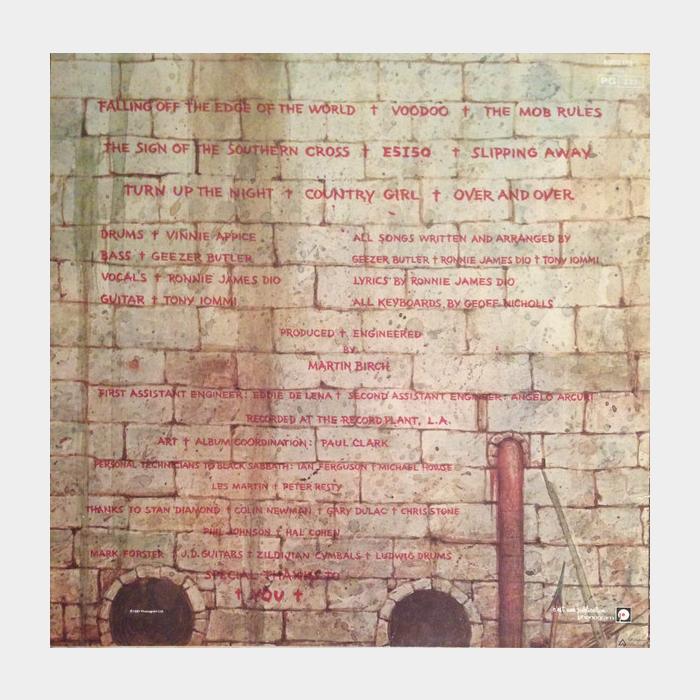 FALLING OFF THE EDGE OF THE WORLD † VOODOO † THE MOB RULES
THE SIGN OF THE SOUTHERN CROSS † E5150 † SLIPPING AWAY
TURN UP THE NIGHT † COUNTRY GIRL † OVER AND OVER
DRUMS † VINNIE APPICE
BASS † GEEZER BUTLER
VOCALS † RONNIE JAMES DIO
GUITAR † TONY IOMMI
ALL SONGS WRITTEN AND ARRANGED BY
GEEZER BUTLER † RONNIE JAMES DIO † TONY IOMMI
LYRICS BY RONNIE JAMES DIO
ALL KEYBOARDS BY GEOFF NICHOLLS
PRODUCED † ENGINEERED
BY
MARTIN BIRCH
FIRST ASSISTANT ENGINEER: EDDIE DE LENA † SECOND ASSISTANT ENGINEER: ANGELO ARCURI
RECORDED AT THE RECORD PLANT, L.A.
ART † ALBUM COORDINATION: PAUL CLARK
PERSONAL TECHNICIANS TO BLACK SABBATH: IAN FERGUSON † MICHAEL HOWSE
LES MARTIN † PETER RESTY
THANKS TO STAN DIAMOND † COLIN NEWMAN † GARY DULAC † CHRIS STONE
PHIL JOHNSON † HAL COHEN
MARK FORSTER † J.D. GUITARS † ZILDJIAN CYMBALS † LUDWIG DRUMS
SPECIAL THANKS TO
† YOU †
phonogram